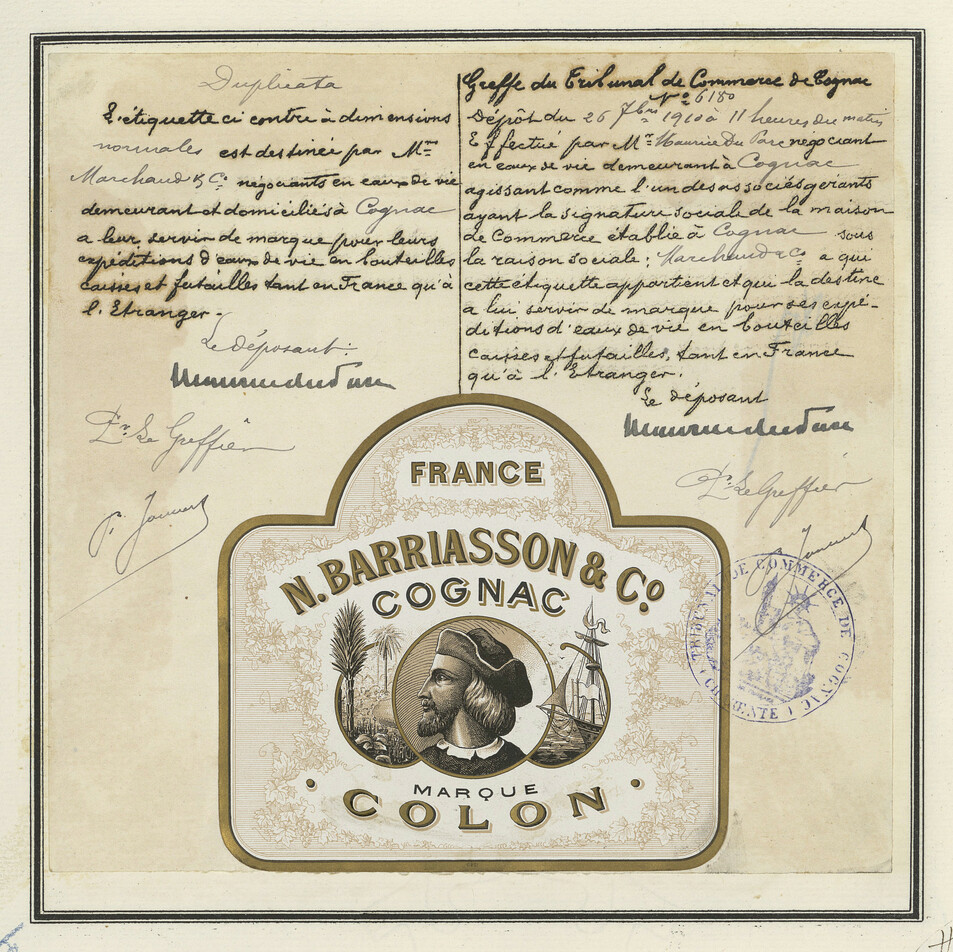 Duplicata
L'étiquette ci contre à dimensions
normales est destinée par Mrs
Marchaud & Co négociants en eaux de vie
demeurant et domiciliés à Cognac
a leur servir de marque pour leurs
expéditions d'eaux de vie en bouteilles
caisses et futailles tant en France qu'à
l'Etranger.-
Le déposant:
Pr. Le Greffier
Greffe du Tribunal de Commerce de Cognac
No 6180
Dépôt du 26 7bre 1910 à 11 heures du matin
Effectué par Mr Maurice Du Parc négociant
en eaux de vie demeurant à Cognac
agissant comme l'un des associés gérants
ayant la signature sociale de la maison
de Commerce établie à Cognac sous
la raison sociale: Marchaud & Co a qui
cette étiquette appartient et qui la destine
a lui servir de marque pour ses expé-
ditions d'eaux de vie en bouteilles
caisses et futailles, tant en France
qu'à l'Etranger.
Le déposant
Pr. Le Greffier
FRANCE
N. BARRIASSON & Co.
COGNAC
MARQUE
COLON
TRIBUNAL DE COMMERCE DE COGNAC
(CHARENTE)